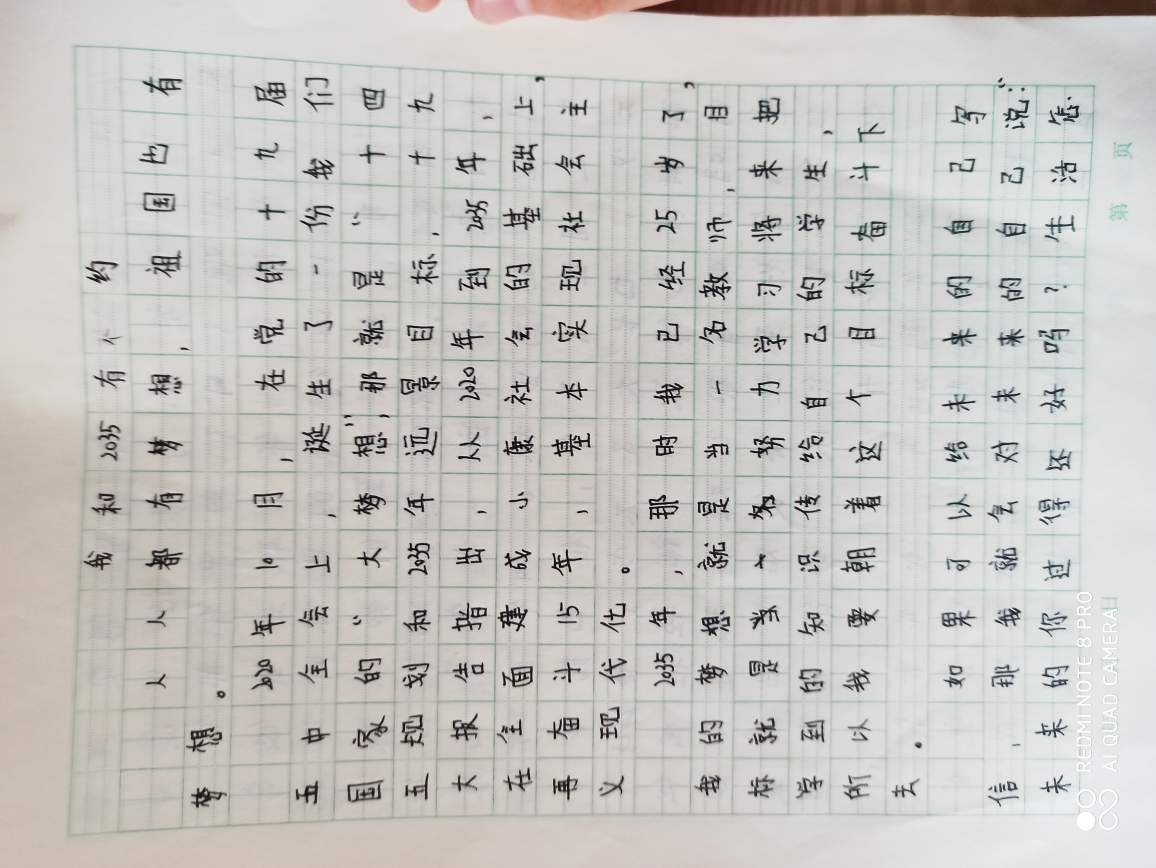 我和2035有个约
人人都有梦想,祖国也有
梦想。
2020年10月,在党的十九届
五中全会上,诞生了一份我们
国家的“大梦想”,那就是“十四
五规划和2035年远景目标,十九
大报告指出,从2020年到2035年,
在全面建成小康社会的基础上,
再奋斗15年,基本实现社会主
义现代化。
2035年,那时我已经25岁了,
我的梦想就是当一名教师,目
标就是努力学习将来把
学到的知识传给自己的学生,
所以我要朝着这个目标奋斗下
去。
如果可以给未来的自己写
信,那我就会对未来的自己说:“
未来的你过得还好吗?生活怎
第 页
REDMI NOTE 8 PRO
AI QUAD CAMERA